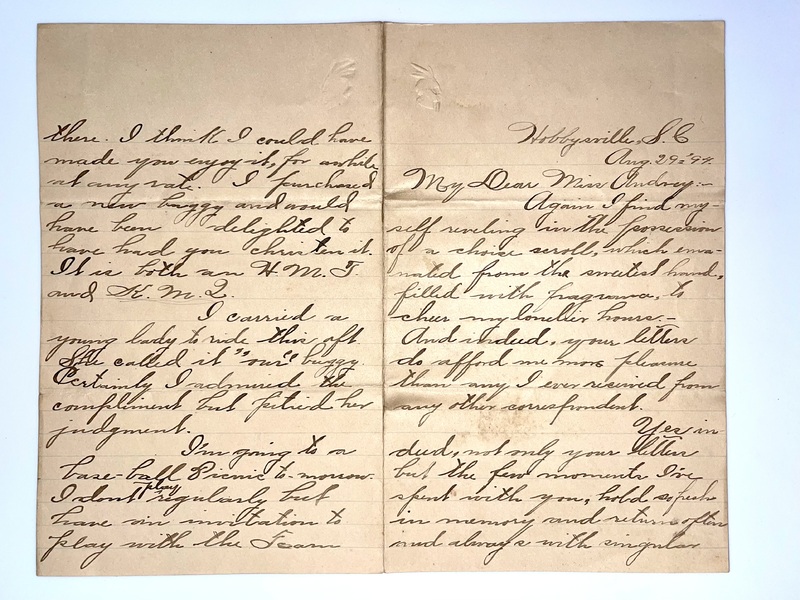 Hobbysville, S. C
Aug. 29. '94.
My Dear Miss Audrey:-
Again I find my-
self reveling in the possession
of a choice scroll, which ema-
nated from the sweetest hand,
filled with fragrance, to
cheer my lonelier hours.-
And indeed, your letters
do afford me more pleasure
than any I ever received from
any other correspondent.
Yes in-
deed, not only your letters
but the few moments I've
spent with you, hold so fresh
in memory and return often
and always with singular
there. I think I could have
made you enjoy it, for awhile
at any rate. I purchased
a new buggy and would
have been delighted to
have had you christen it.
It is both an H. M. T.
and K. M. Q.
I carried a
young lady to ride this aft.
She called it "our" buggy
Certainly I admired the
compliment but pitied her
judgment.
I'm going to a
base-ball Picnic to-morrow.
I dont play regularly but
have an invitation to
play with the Team